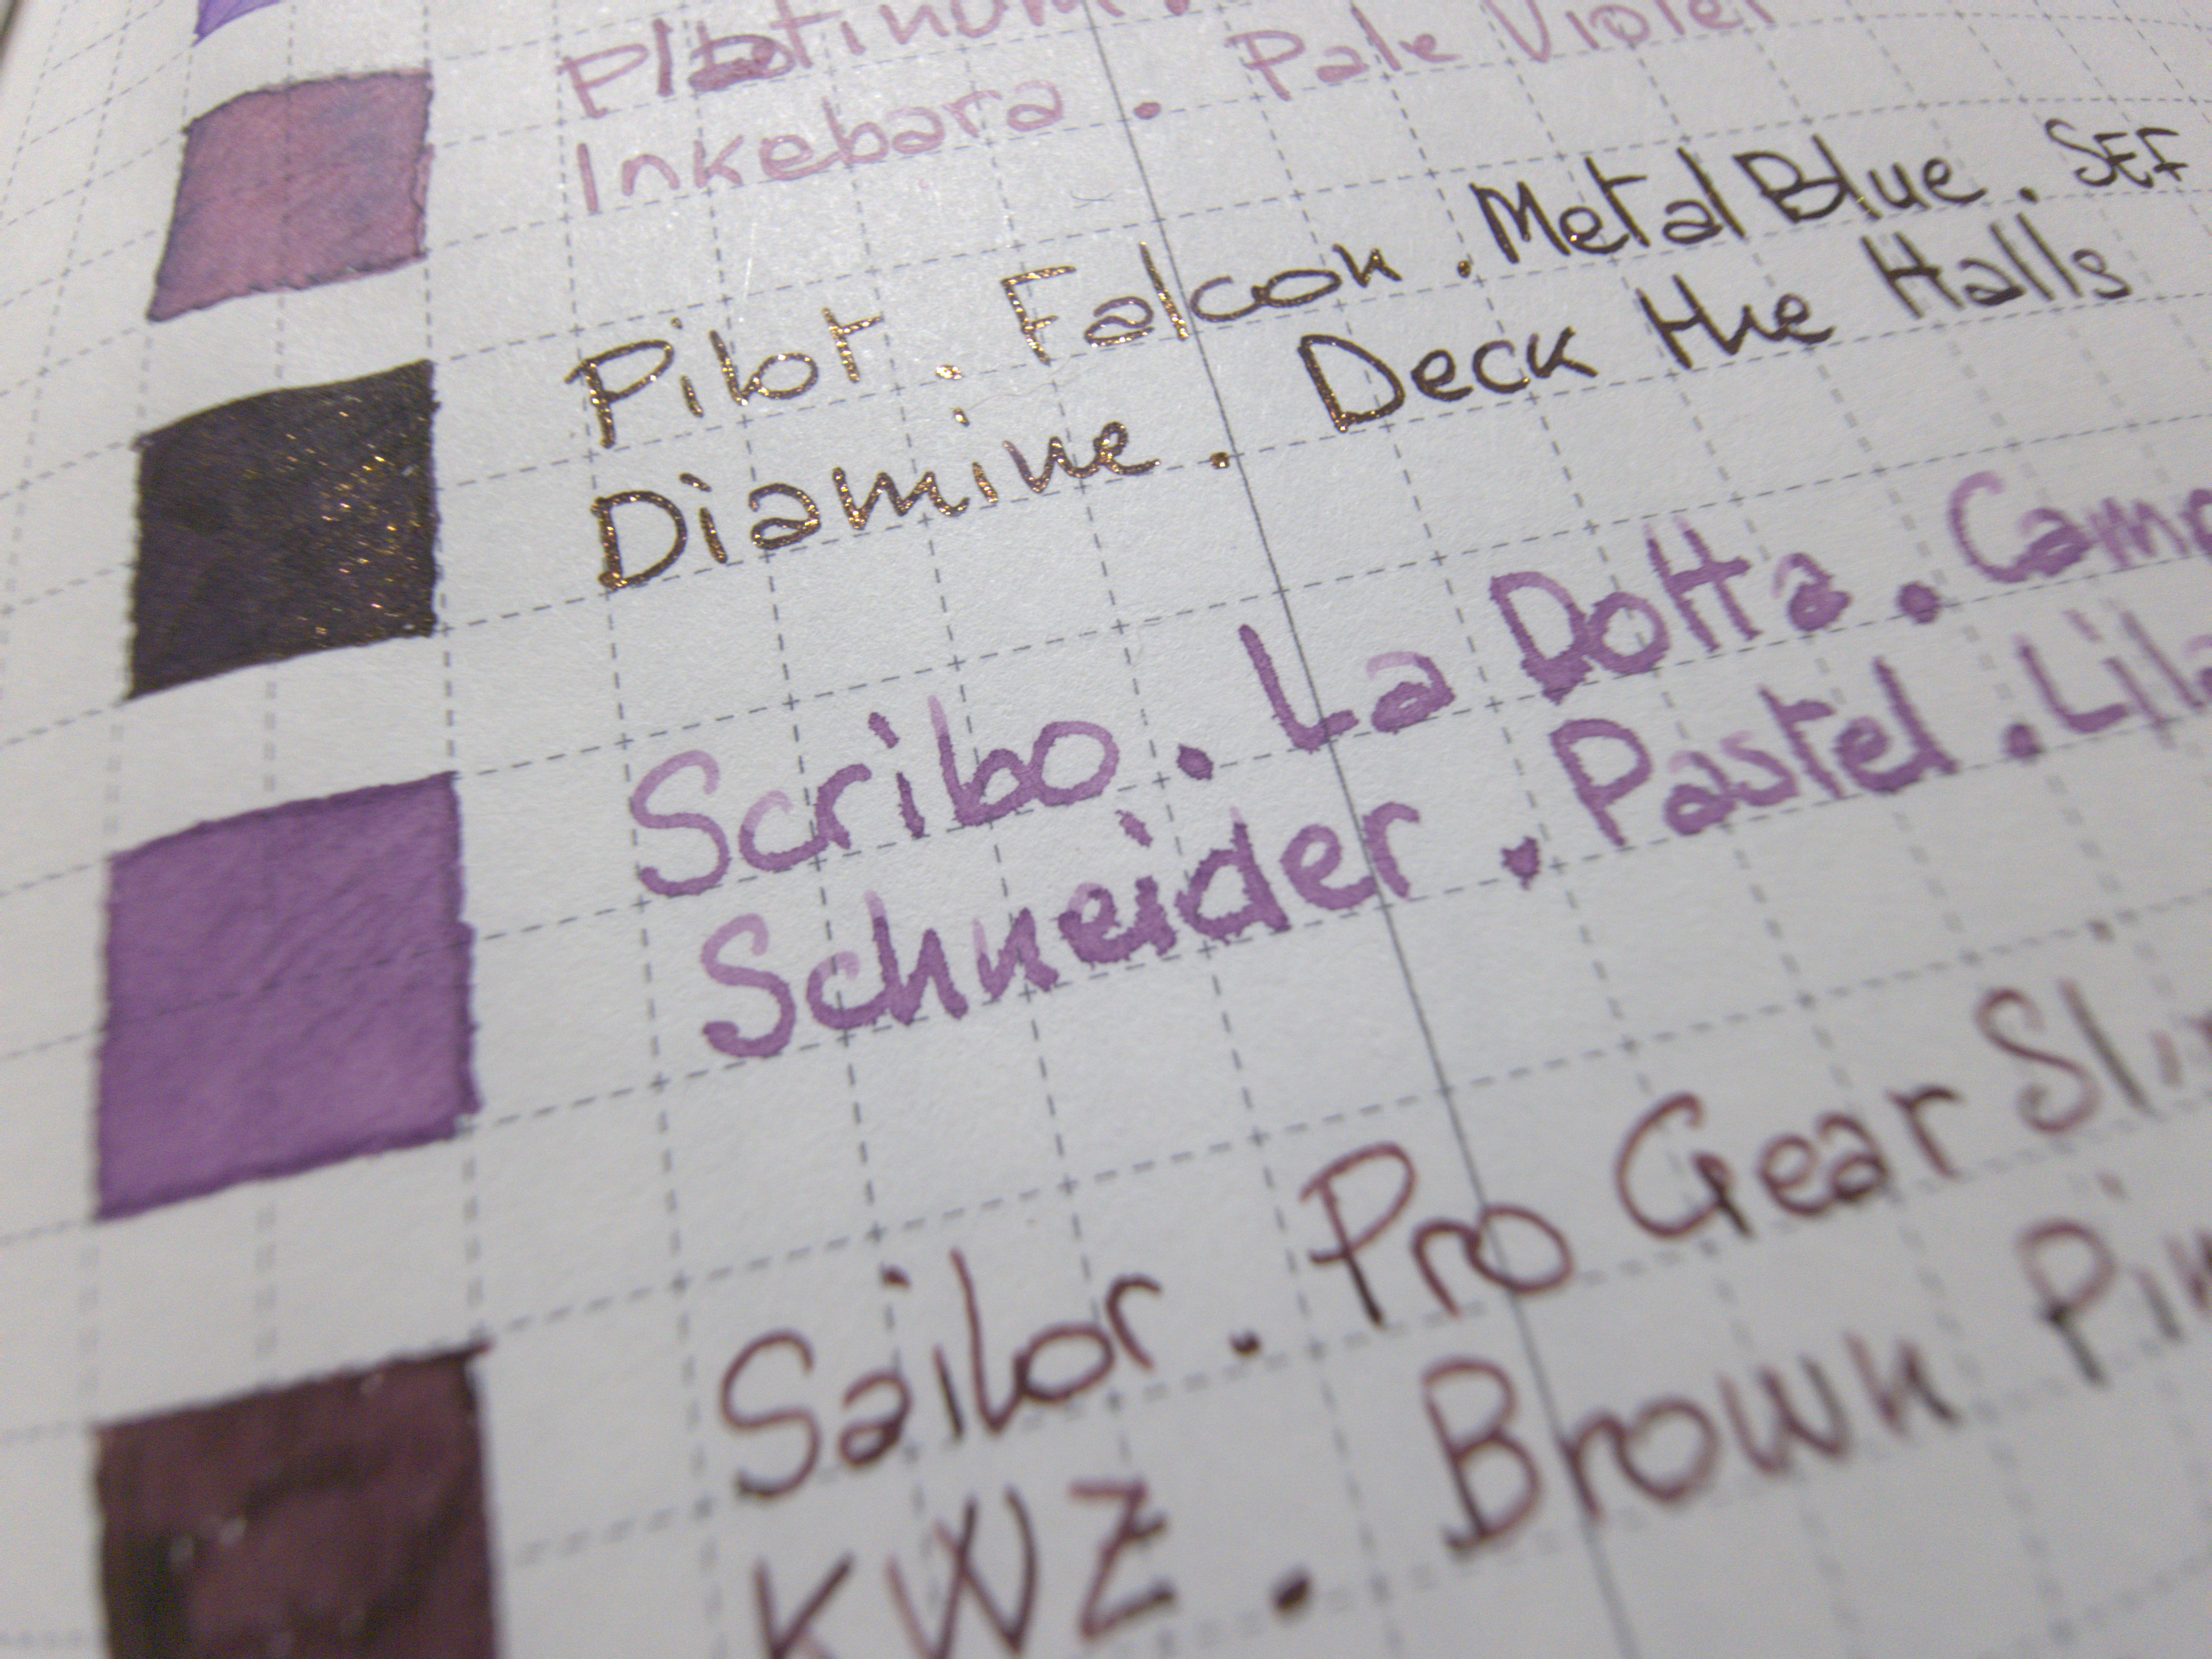 Platinum.
Inkebara . Pale Violet
Pilot . Falcon . Metal Blue . SEF
Diamine . Deck the Halls
Scribo . La Dotta .
Schneider . Pastel .
Sailor . Pro Gear
KWZ . Brown